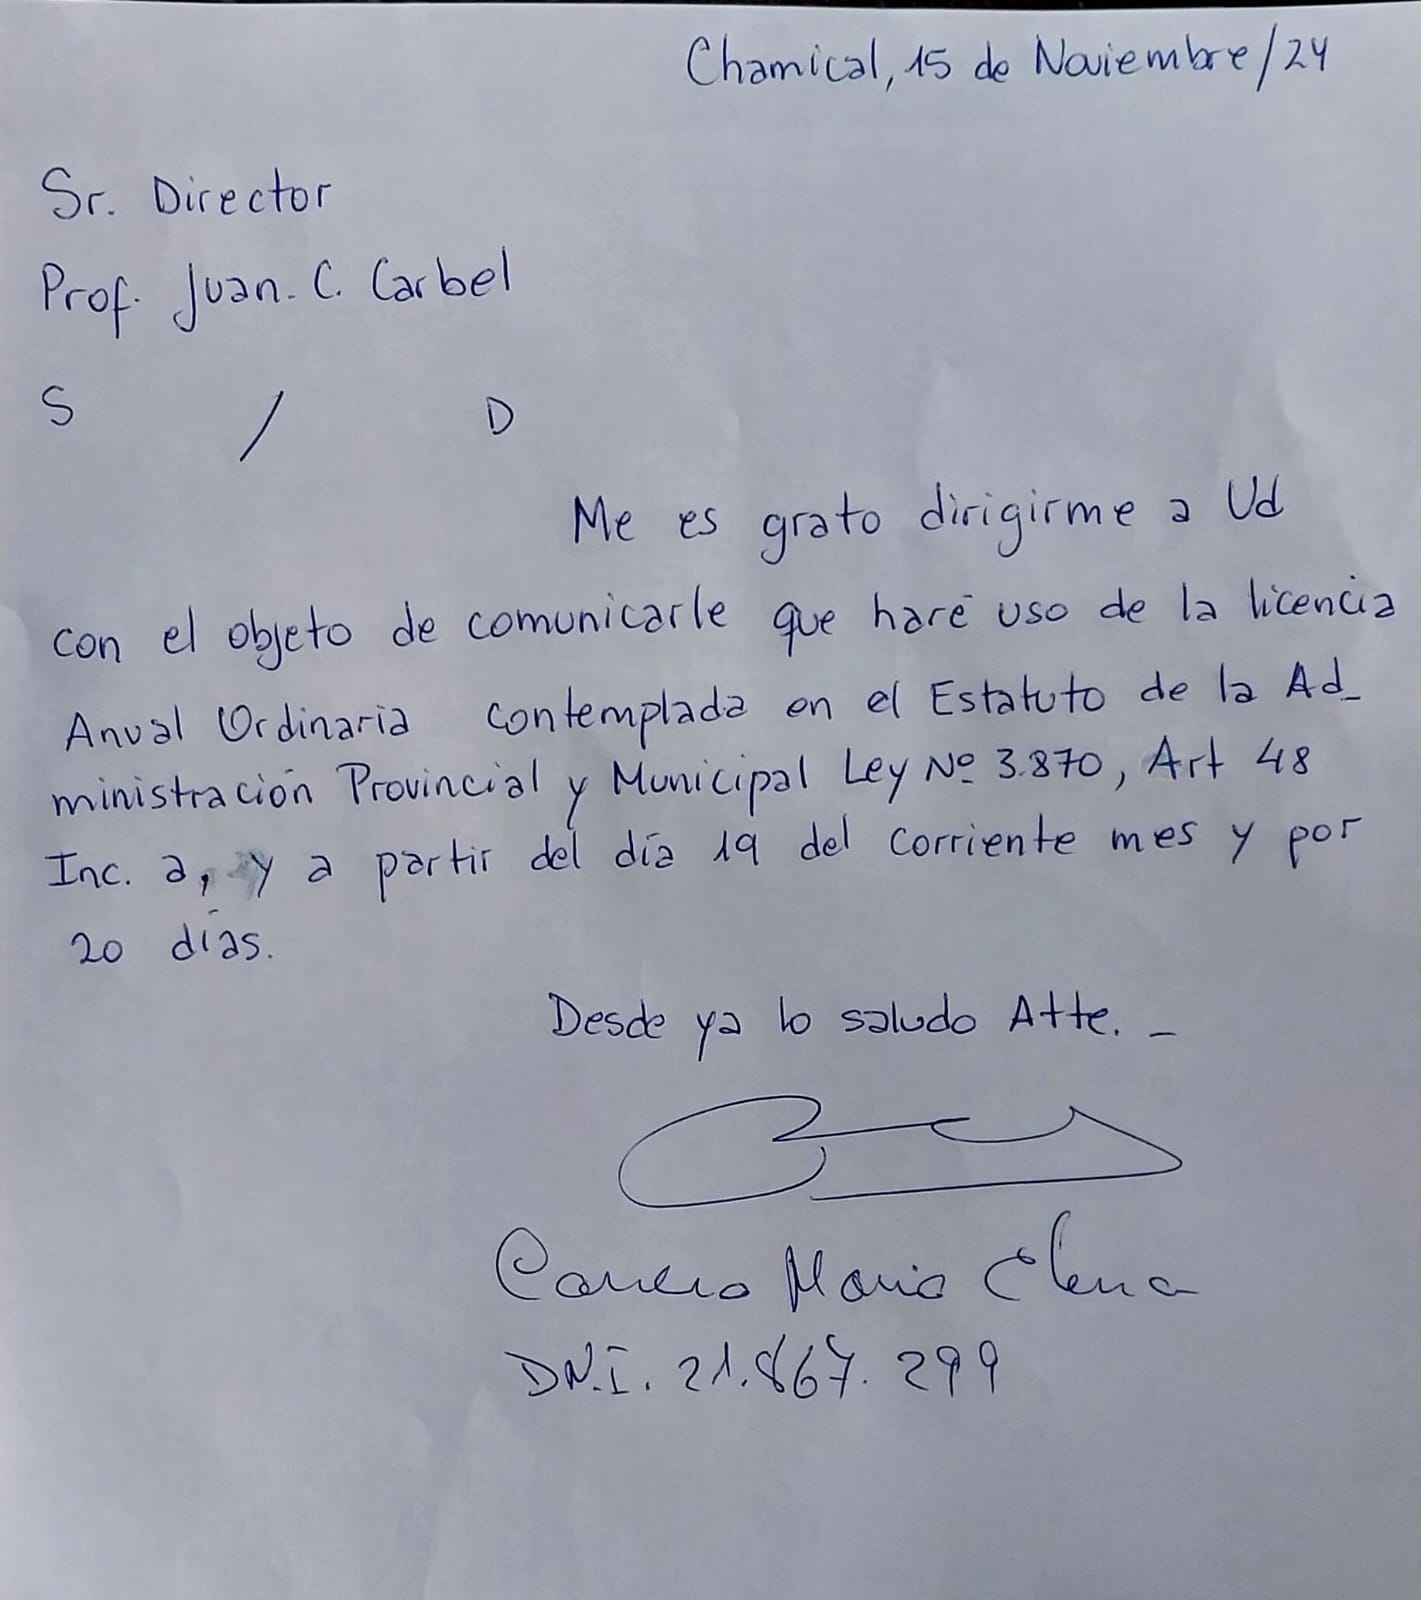 Chamical, 15 de Noviembre/24
Sr. Director
Prof. Juan. C. Carbel
S / D
Me es grato dirigirme a Ud
con el objeto de comunicarle que haré uso de la licencia
Anual Ordinaria contemplada en el Estatuto de la Ad_
ministración Provincial y Municipal Ley Nº 3.870, Art 48
Inc. a, y a partir del día 19 del corriente mes y por
20 días.
Desde ya lo saludo Atte. _
Maria Elena
D.N.I. 21.867.299